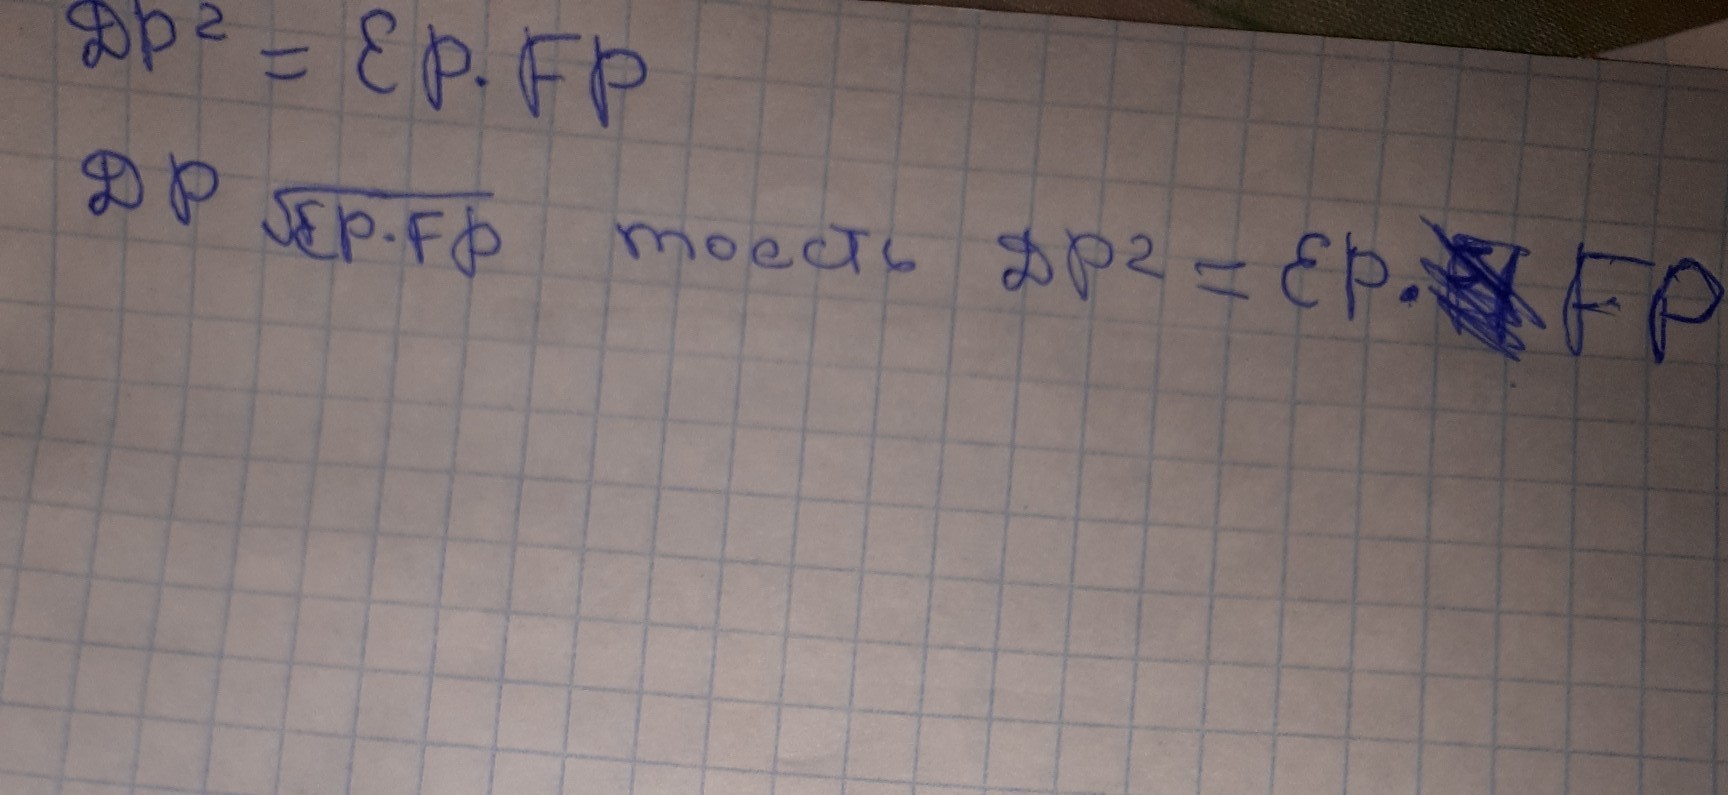 DP² = EP · FP
DP √EP·FP тоесть DP² = EP · FP